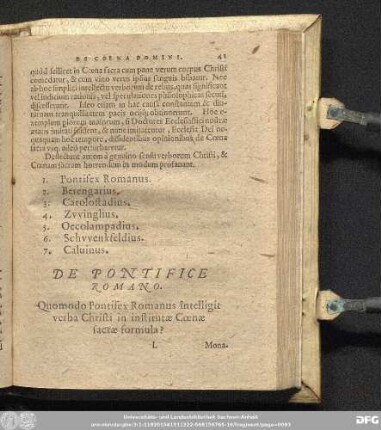 DE COENA DOMINI. 41
quòd scilicet in Coena sacra cum pane verum corpus Christi
comedatur, & cum vino verus ipsius sanguis bibatur. Nec
ab hoc simplici intellectu verborum de rebus, quas significant
vel indicium rationis, vel speculationes philosophicas secuti,
discesserunt. Ideo etiam in hac causa constantem & diu-
turnam tranquillitatem pacis
exemplum piorum maiorum, si Doctores Ecclesiastici nostrae
aetatis imitati fuissent, & nunc imitarentur, Ecclesia Dei ne-
quaquam hoc tempore, dissidentibus opinionibus de Coena
sacra
Deflectunt autem à genuino sensu verborum Christi, &
Coenam sacram horrendum in modum profanant.
1. Pontifex Romanus.
2. Berengarius.
3. Carolostadius.
4. Zvvinglius.
5. Oecolampadius.
6. Schvvenkfeldius.
7. Caluinus.
DE PONTIFICE
ROMANO.
Quomodo Pontifex Romanus Intelligit
verba Christi in institutae Coenae
sacrae formula?
I. Mona-
Universitäts- und Landesbibliothek Sachsen-Anhalt
DFG